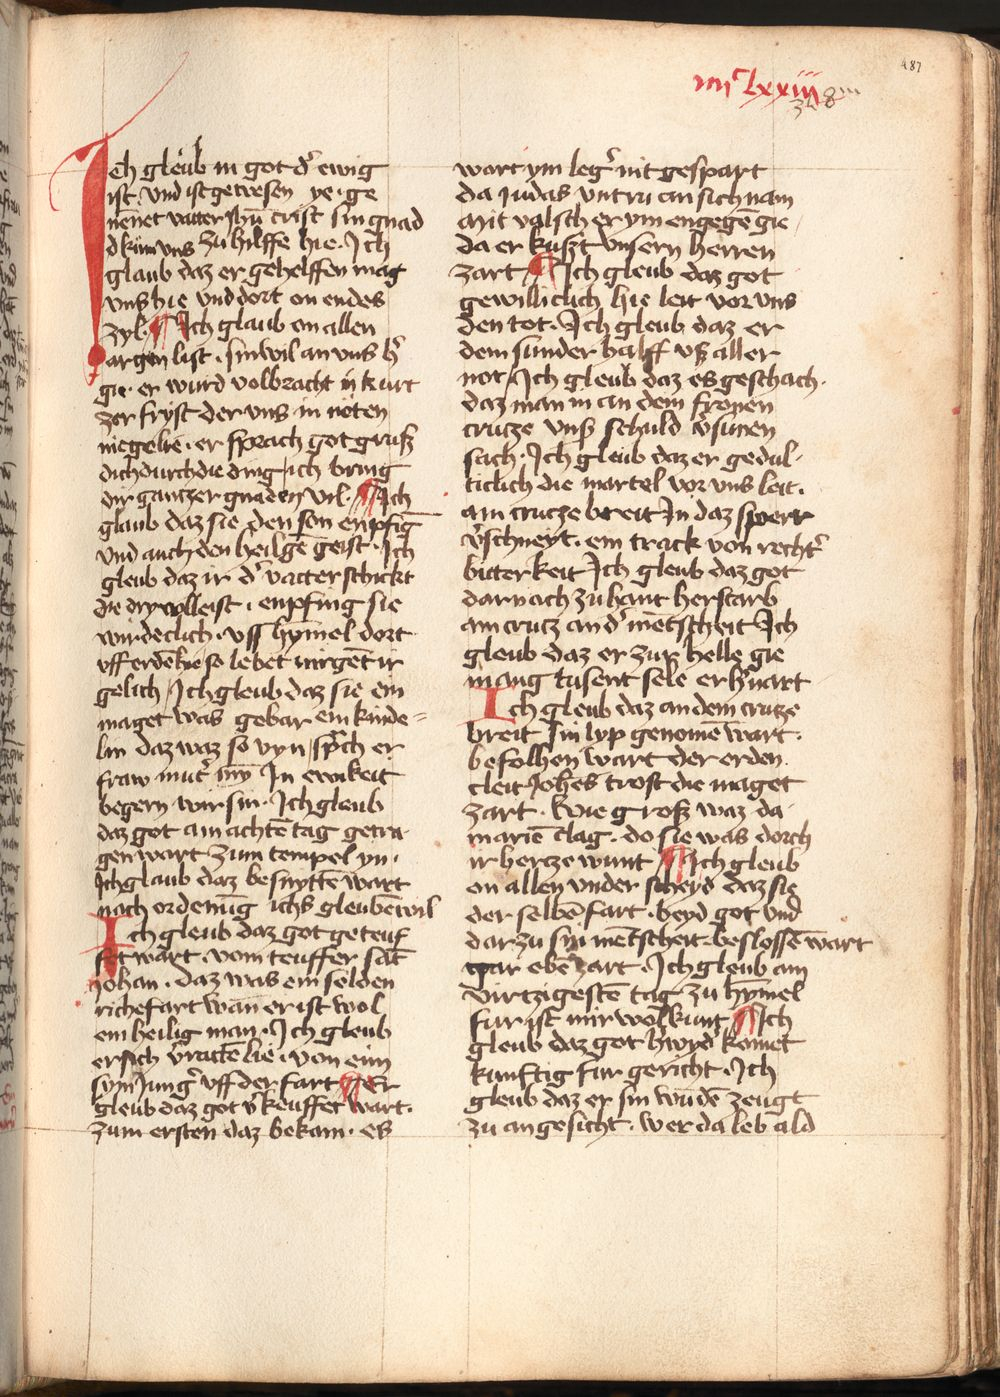 487
iiiiᶜ lxxiii
348
Ich gleub in got dʼ ewig
ist. vnd ist gewesen ye. ge
nēnet vatter Jhū crist sin gnad
d kūm vns zu hilffe hie. Ich
glaub daz er gehelffen mag
vns hie vnd dort on endes
zyl. ¶ Ich glaub on allen
argen list. sin wil an vns hʼ
gie. er wurd volbracht in kurt
zer fryst der vns in nöten
nie gelie. er sprach got grusz
dich durch die ding ich bring
dir gantzer gnaden vil. ¶ Ich
glaub daz sie den son enpfīg
vnd auch den heilgē geist. Ich
gleub daz ir dʼ vatter schickt
die dry volleist. enpfing sie
wirdeclich. vss hymel dort
vff erdē hie so lebet nirgēt ir
gelich / Ich gleub daz sie ein
maget was gebar ein kinde=
lin daz waz so vyn / sprach er
fraw mutʼ myn In ewikeit
begern wir sin. Ich gleub
daz got am achtē tag getra
gen wart zum tempel yn.
Ich glaub daz besnyttē wart
nach ordenūg ichs gleubē wil
Ich gleub daz got geteuf
fet wart. vom teuffer sāt
Johan. daz was ein selden
riche fart wan er ist wol
ein heilig man. Ich gleub
er sich vʼratē lie. von eim
sym Jungʼ vff der fart ¶ Er
gleub daz got vʼkeuffet wart.
zum ersten daz bekam. es
wart ym legʼ nit gespart
da Judas vntru an sich nam
Mit valsch er ym engegē gie /
da er kuszt vnsern herren
zart ¶ Ich gleub daz got
gewilliclich hie leit vor vns
den tot. Ich gleub daz er
dem sunder halff vsz aller
not / Ich gleub daz es geschach.
daz man in an dem fronen
crutze vnsz schuld vʼsunen
sach. Ich gleub daz er gedul=
ticlich die martel vor vns leit.
am crutze breit In daz swert
vʼschneyt. ein track von rechtʼ
bitterkeit Ich gleub daz got
darnach zu hant herstarb
am crutz an dʼ mētscheit Ich
gleub daz er zur helle gie
mang tusent sele erhʼnart
Ich gleub daz an dem crutze
breit Sin lyp genomē wart.
befolhen wart der erden
cleit Johēs trost die maget
zart. Wie grosz waz da
mariē clag. do sie was dorch
ir hertze wunt ¶ Ich gleub
on allen vnder scheyd daz sie
der selbē fart. beyd got vnd
dar zu sin mētscheit. beslossē wart
gar ebē zart. Ich gleub am
virtzigestē tag zu hymel
fur ist mir wol kunt ¶ Ich
gleub daz got hʼwyd komet
kunftig fur gericht. Ich
gleub daz er sin wūdē zeugt
zu angesicht. wer da leb ald